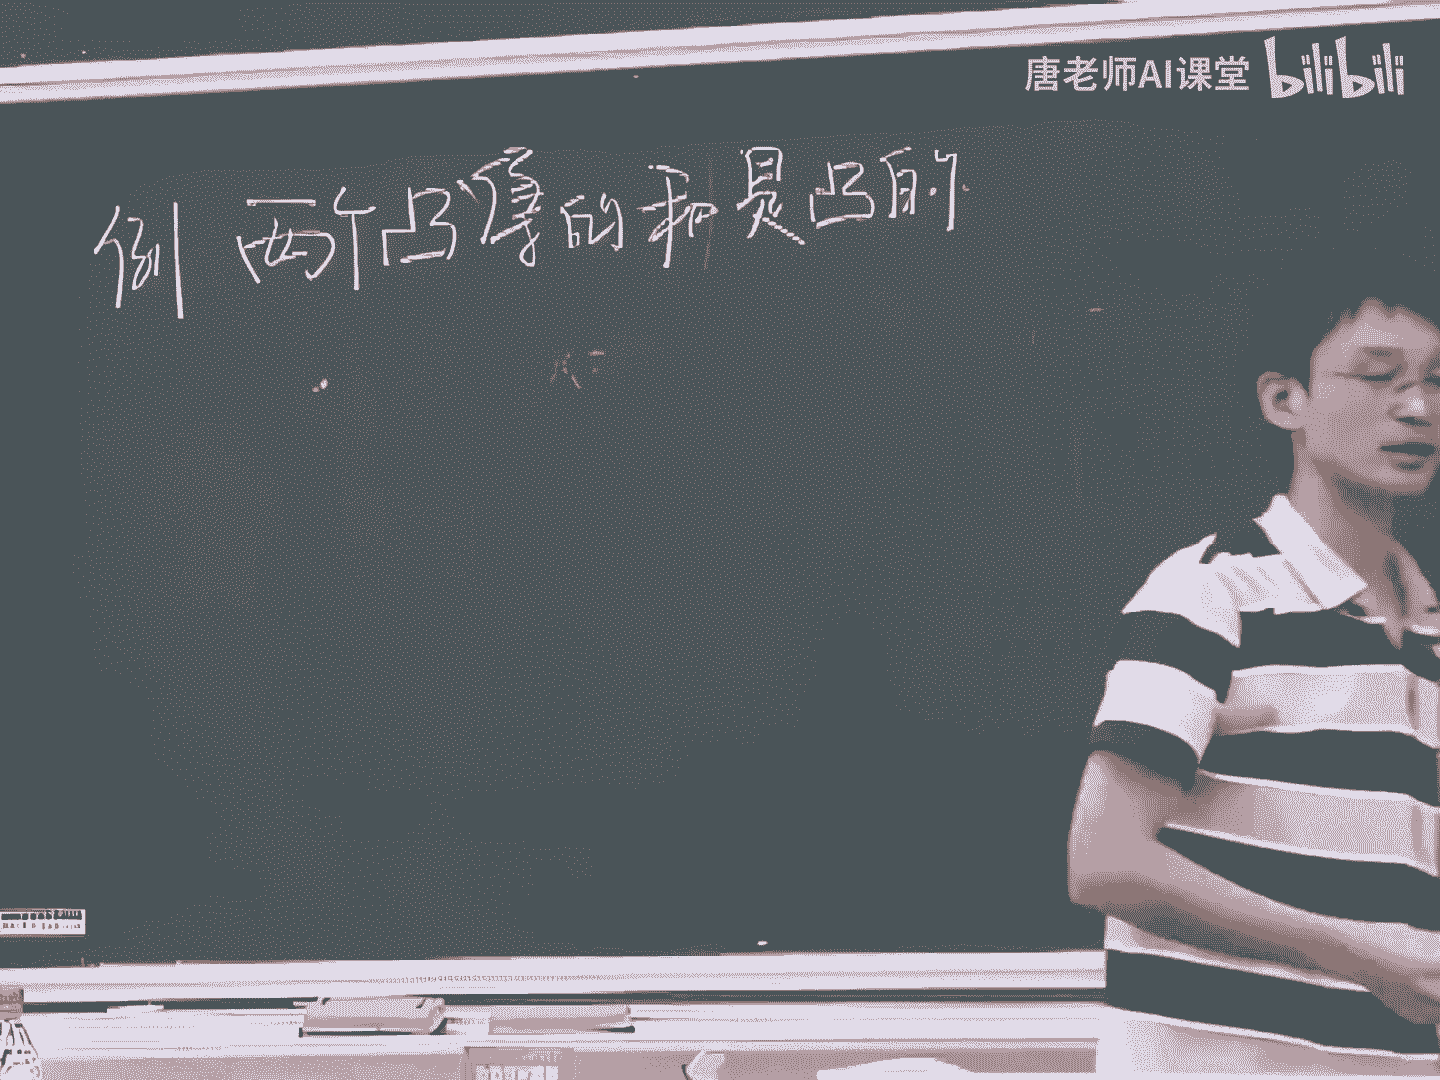 唐老师AI课堂 bilibili
例 两个凸集的和是凸的